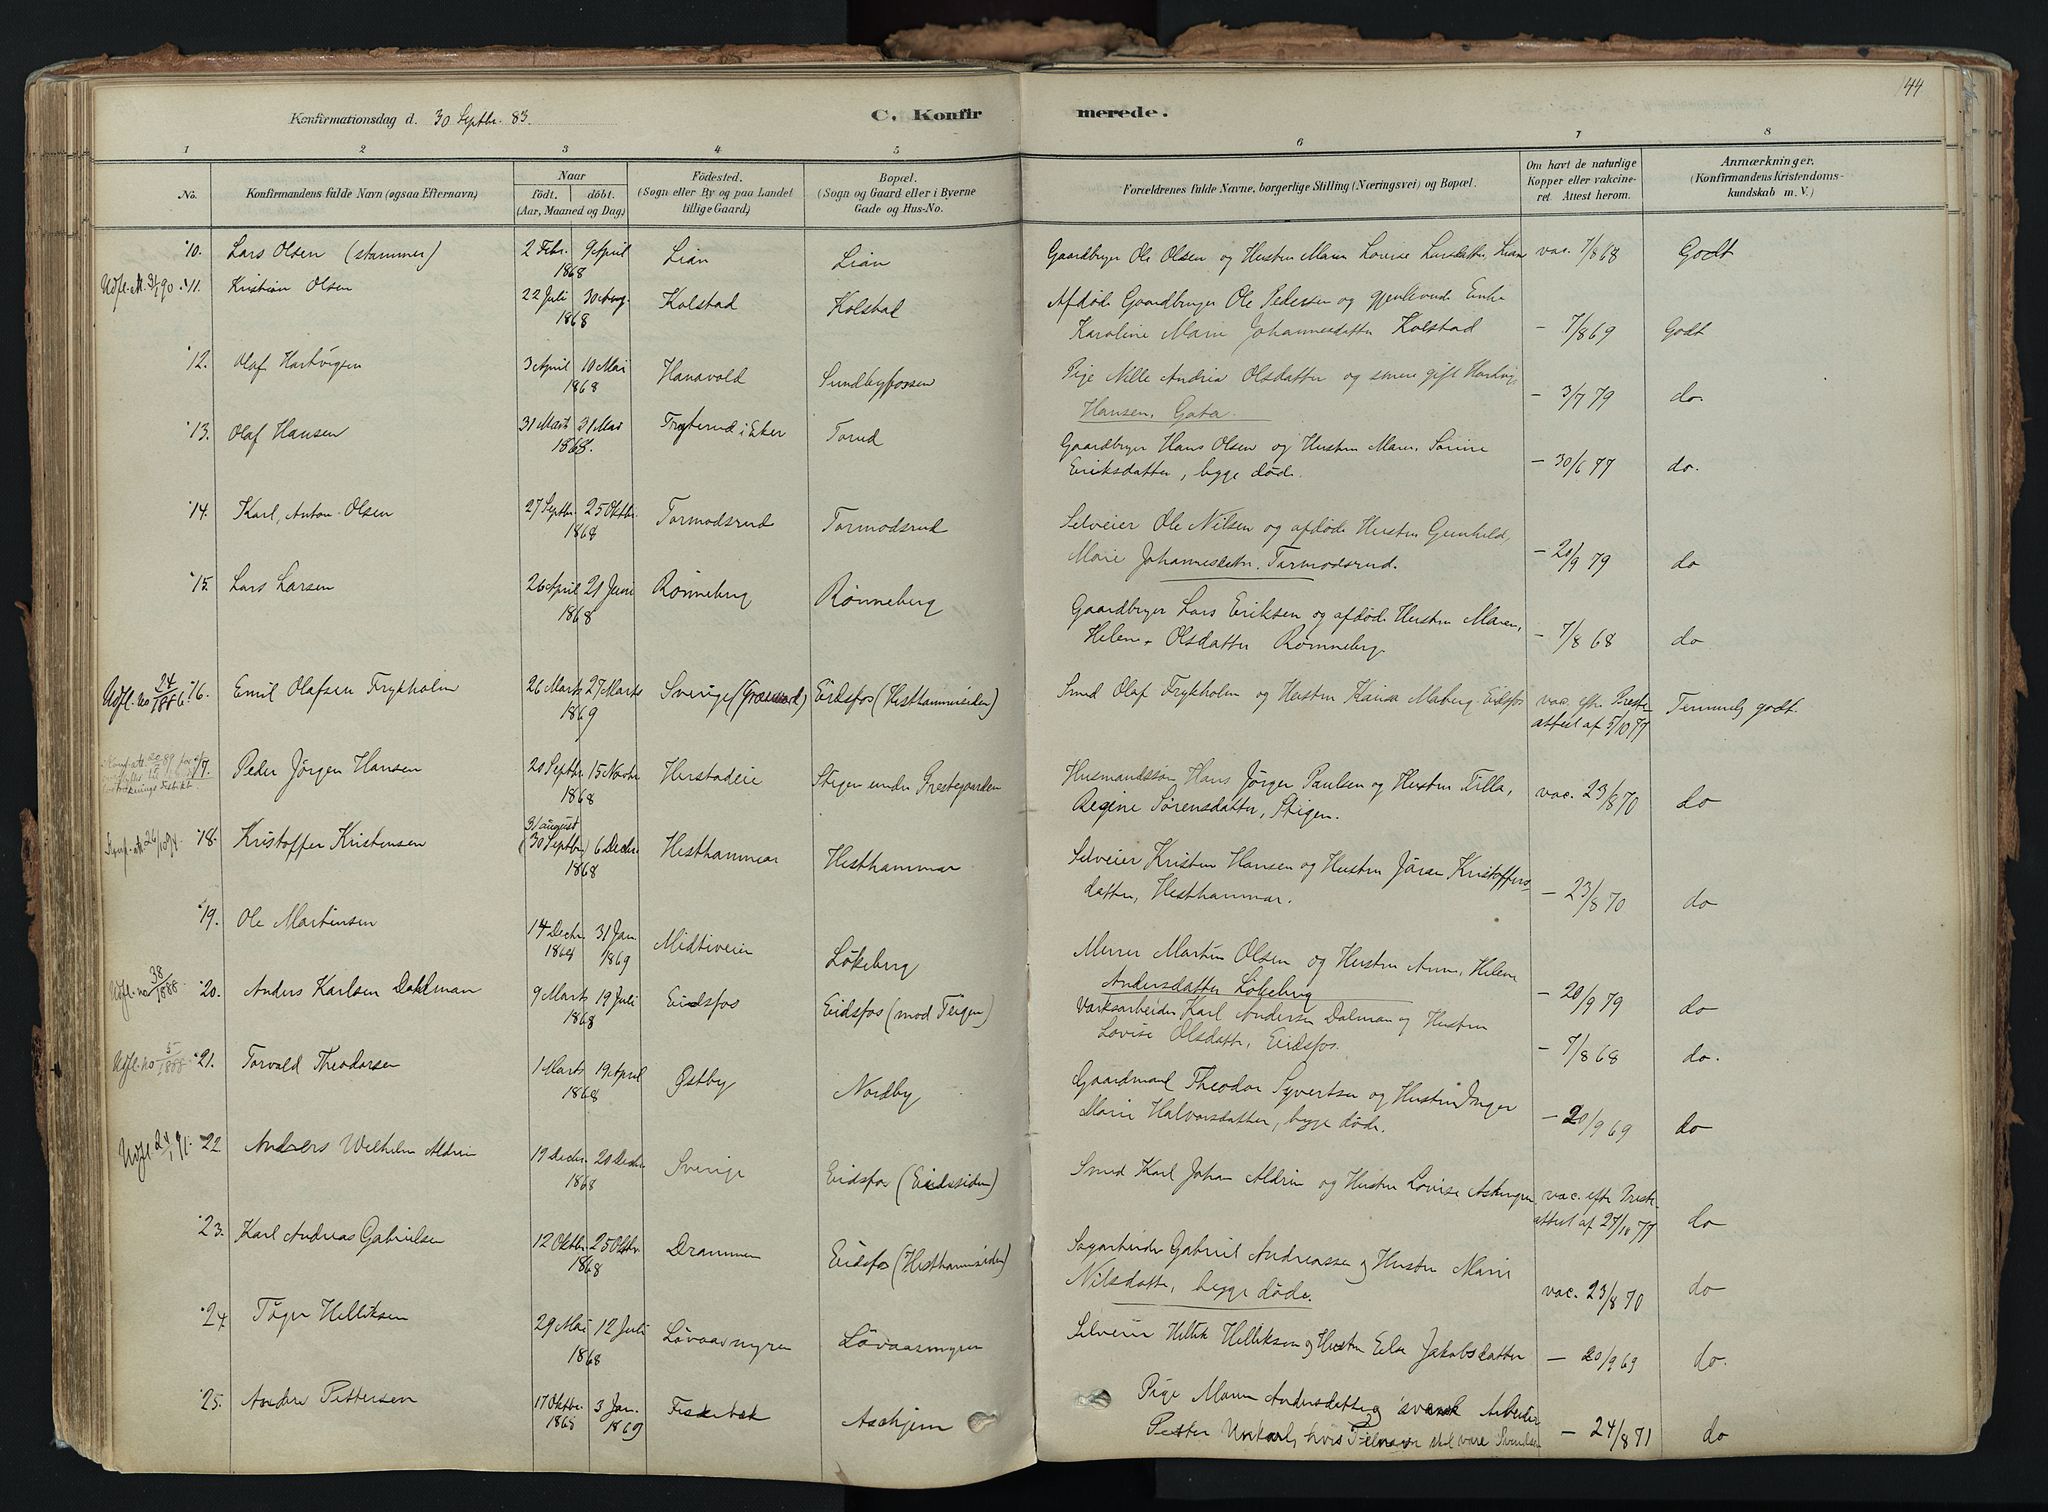 144
Konfirmationsdag d. 30 Septbr. 83.
C. Konfir merede.
1 2 3 4 5 6 7 8
No.
Konfirmandens fulde Navn (ogsaa Efternavn)
Naar
födt. döbt.
(Aar, Maaned og Dag)
Födested.
(Sogn eller By og paa Landet
tillige Gaard)
Bopæl.
(Sogn og Gaard eller i Byerne
Gade og Hus-No.
Forældrenes fulde Navne, borgerlige Stilling (Næringsvei) og Bopæl.
Om havt de naturlige
Kopper eller vakcine-
ret. Attest herom.
Anmærkninger.
(Konfirmandens Kristendoms-
kundskab m. V.)
10. Lars Olsen (stammer) 2 Febr. 9 April 1868 Lian Lian Gaardbruger Ole Olsen og Hustru Maren Lovise Larsdatter, Lian vac. 7/8 68 Godt
11. Kristian Olsen 22 Juli 30 Aug. 1868 Kolstad Kolstad Afdøde Gaardbruger Ole Pedersen og gjenlevende Enke
Karoline Marie Johannesdatter Kolstad — 7/8 69 Godt
12. Olaf Hartvigsen 3 April 10 Mai 1868 Hanavold Sundbyfossen Pige Nille Andria Olsdatter og senere gift Hartvig
Hansen, Gata. — 3/7 79 do.
13. Olaf Hansen 31 Marts 21 Mai 1868. Fryterud i Eker Torud Gaardbruger Hans Olsen og Hustru Maren Sorine
Eriksdatter, begge døde. — 30/6 77 do.
14. Karl Anton Olsen 27 Septbr. 25 Oktbr. 1868 Tormodsrud Tormodsrud Selveier Ole Nilsen og afdøde Hustru Gunhild
Marie Johannesdatr. Tormodsrud. — 20/9 79 do
15. Lars Larsen 26 April 21 Juni 1868 Rønneberg Rønneberg Gaardbruger Lars Eriksen og afdøde Hustru Maren
Helene Olsdatter Rønneberg. — 7/8 68 do
Udfl. no 24/1886 16. Emil Olafsen Frykholm 26 Marts 27 Marts 1869 Sverige Eidsfos (Hesthammersiden) Smed Olaf Frykholm og Hustru Kaisa Maberg Eidsfos vac. efter Preste
attest af 5/10 79 Temmelig godt.
17. Peder Jörgen Hansen 20 Septbr. 15 Novbr. 1868 Herstadeie Stigen under Prestegaarden Husmandssøn Hans Jörgen Paulsen og Hustru Tilla
Regine Sörensdatter, Stigen. vac. 23/8 70 do
18. Kristoffer Kristensen 31 august (30 Septbr.) 6 Decbr. 1868 Hesthammar Hesthammar Selveier Kristen Hansen og Hustru Jöran Kristoffers-
datter, Hesthammar. — 23/8 70 do
19. Ole Martinsen 14 Decbr. 1868 31 Jan. 1869 Midtiveien Lökeberg Murer Martin Olsen og Hustru Anne Helene
Andersdatter Lökeberg — 20/9 79 do
Udfl. no 38/1888. 20. Anders Karlsen Dahlman 9 Marts 19 Juli 1868 Eidsfos Eidsfos (mod Teigen) Værksarbeider Karl Andersen Dalman og Hustru
Lovise Olsdatter, Eidsfos. — 7/8 68 do.
Udfl. no 5/1888 21. Torvald Theodorsen 1 Marts 19 April 1868 Østby Nordby Gaardmand Theodor Syvertsen og Hustru Inger
Marie Halvorsdatter, begge døde. — 20/9 69 do
22. Anders Wilhelm Aldrin 19 Decbr. 20 Decbr. 1868 Sverige Eidsfos (Eidssiden) Smed Karl Johan Aldrin og Hustru Lovise vac. efter Prest
attest af 27/10 79 do
23. Karl Andreas Gabrielsen 12 Oktbr. 25 Oktbr. 1868 Drammen Eidsfos (Hesthammersiden) Sagarbeider Gabriel Andreassen og Hustru Marie
Nilsdatter, begge døde. vac. 23/8 70 do
24. Töger Helliksen 29 Mai 12 Juli 1868 Lövaasmyren Lövaasmyren Selveier Hellik Helliksen og Hustru Else Jakobsdatter — 20/9 69 do.
25. Andre Pettersen 17 Oktbr. 1868 3 Jan. 1869 Fiskebæk Aschjem Pige Maren Andersdatter og svensk Arbeider
Petter hvis Tilnavn skal være — 24/8 71 do